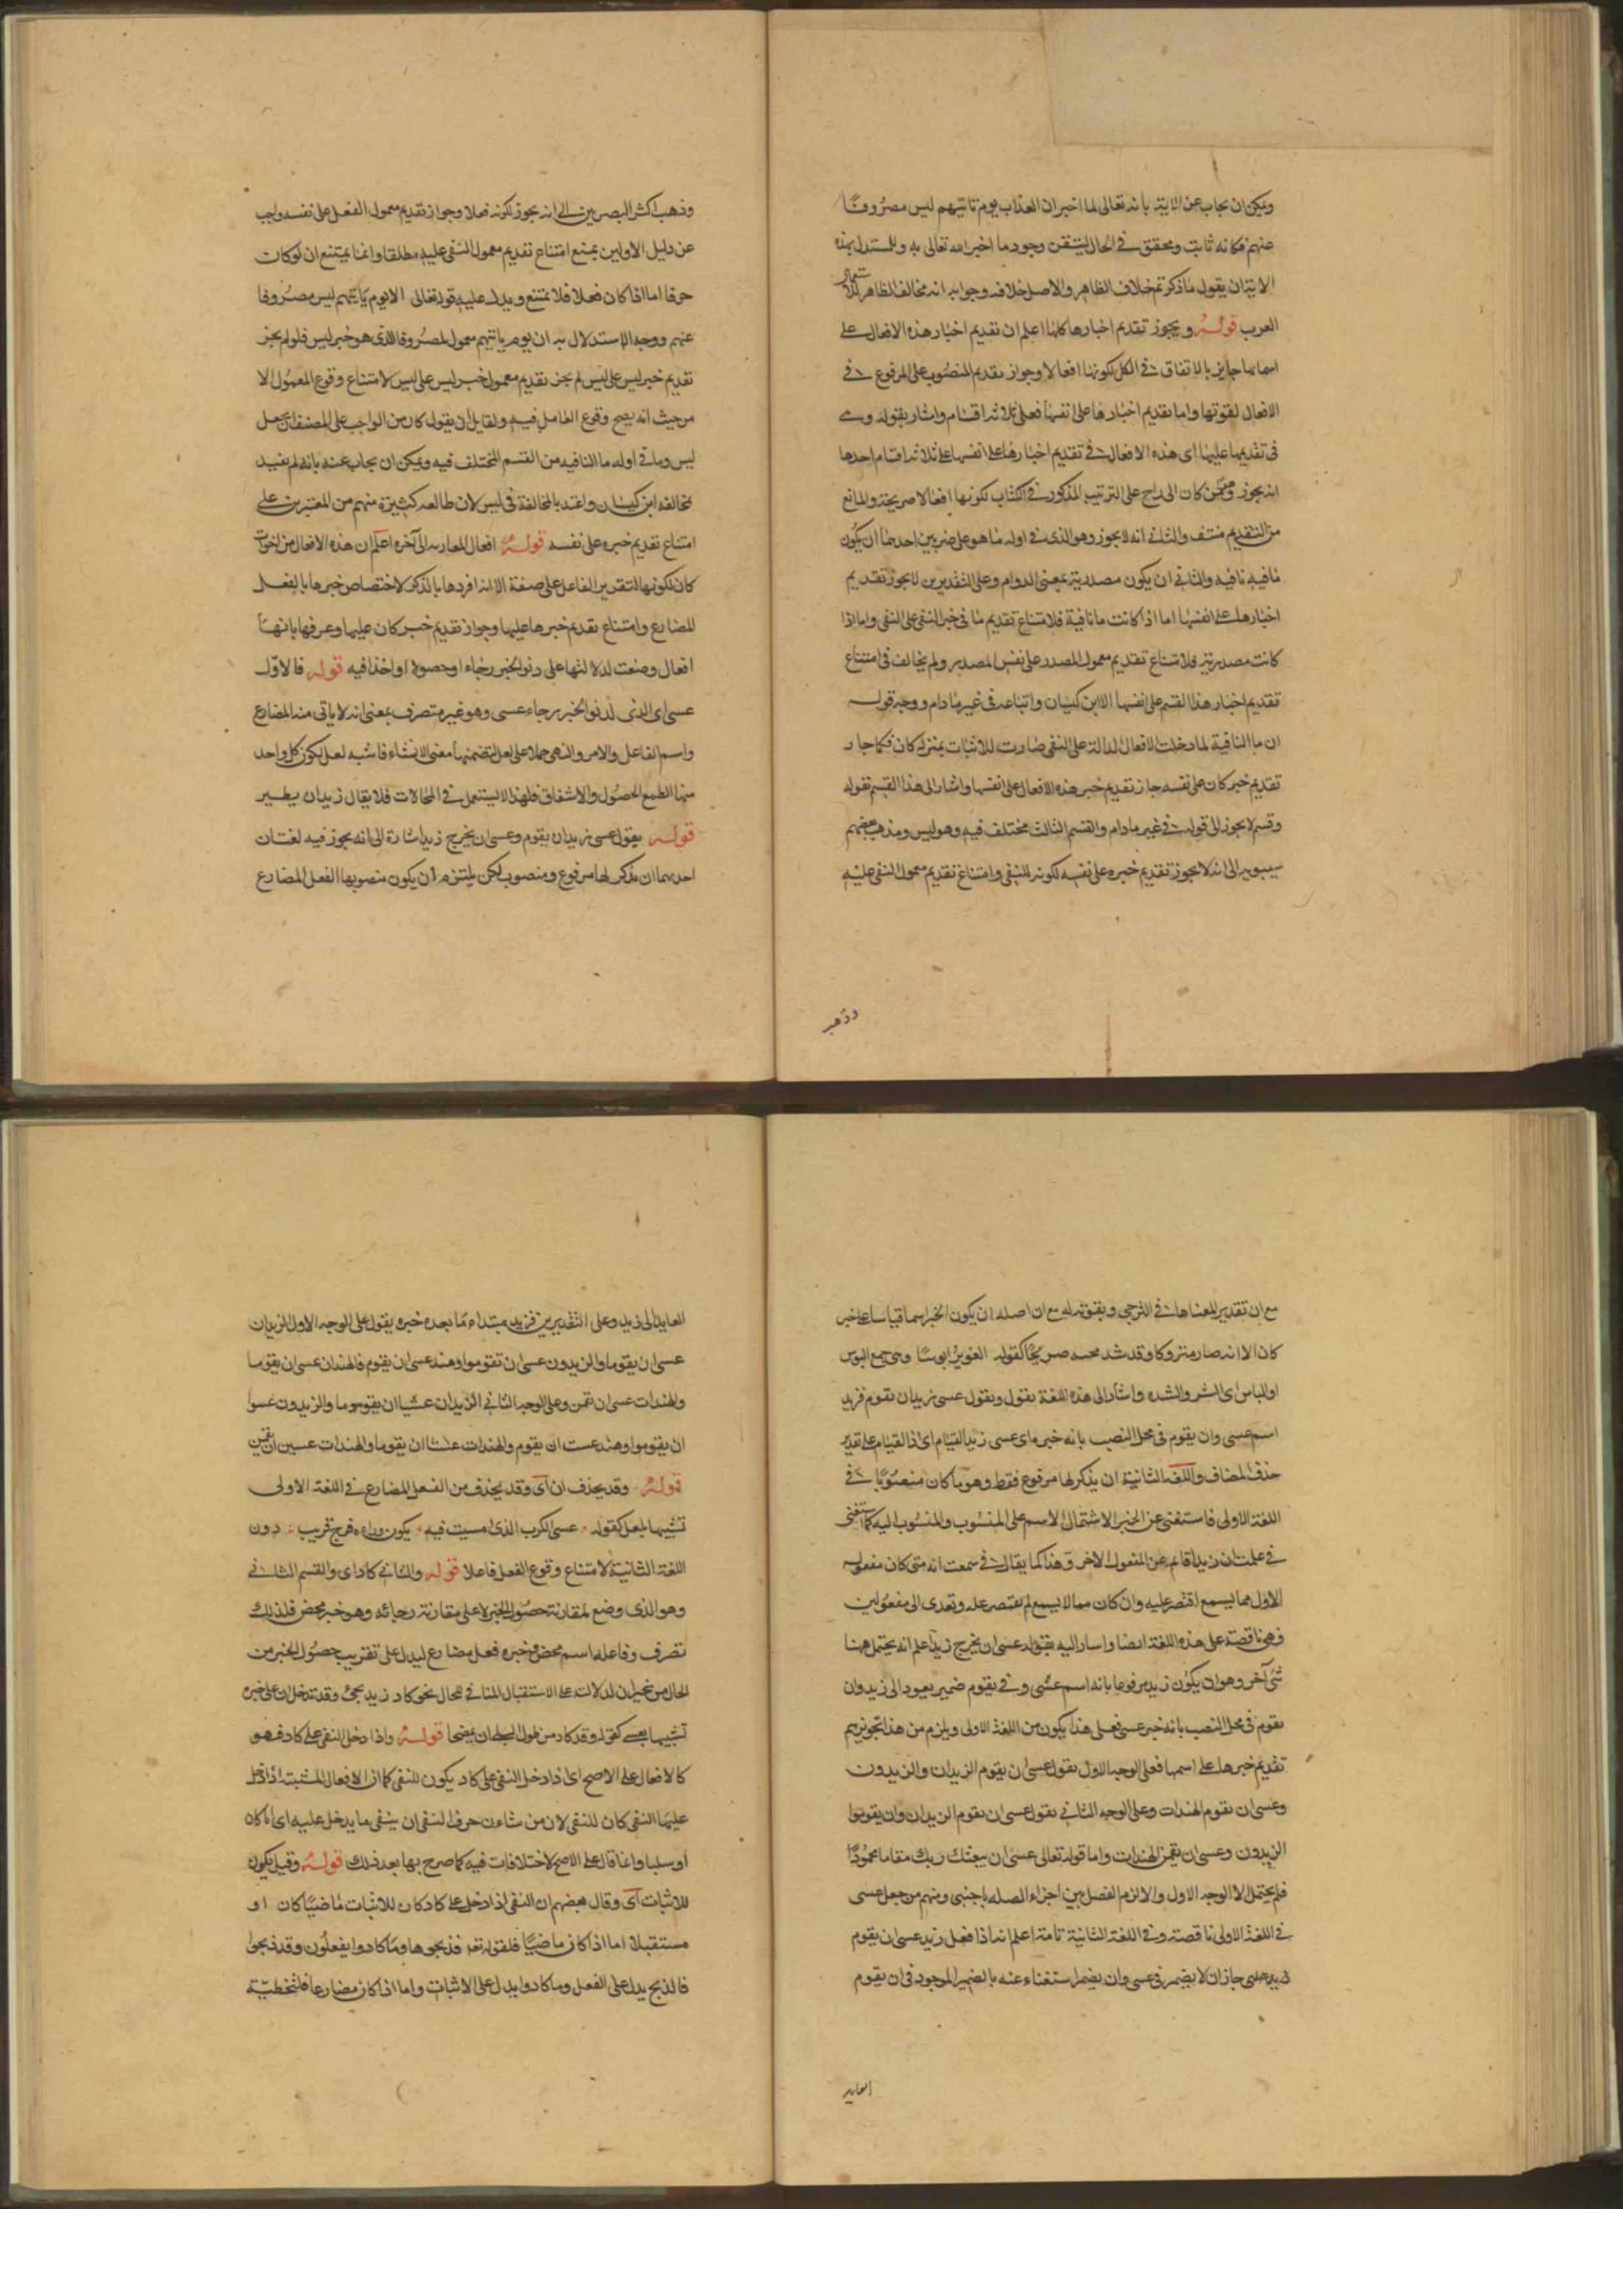 ويمكن ان يجاب عن الاية بانه تعالى لما اخبر ان العذاب يوم تاتيهم ليس مصروفا
عنهم فكانه ثابت ومحقق في الحال لتيقن وجود ما اخبر الله تعالى به وللمستدل بهذه
الاية ان يقول ما ذكرتم خلاف الظاهر والاصل خلافه وجوابه انه مخالف لظاهر استعمال
العرب قوله ويجوز تقديم اخبارها كلها اعلم ان تقديم اخبار هذه الافعال على
اسمائها جايز بالاتفاق في الكل لكونها افعالا وجواز تقديم المنصوب على المرفوع في
الافعال لقوتها واما تقديم اخبارها على انفسها فعلى ثلاثة اقسام واشار بقوله وهي
في تقديمها عليها اى هذه الافعال في تقديم اخبارها على انفسها على ثلاثة اقسام احدها
انه يجوز وهو من كان الى راح على الترتيب المذكور في الكتاب لكونها افعالا صريحة والمانع
من التقديم منتف والثاني انه لا يجوز وهو الذى في اوله ما هو على ضربين احدهما ان يكون
ما فيه نافيه والثاني ان يكون مصدرية بمعنى الدوام وعلى التقديرين لا يجوز تقديم
اخبارها على انفسها اما اذا كانت ما نافية فلامتناع تقديم ما في خبر النفى على النفى واما اذا
كانت مصدرية فلامتناع تقديم معمول المصدر على نفس المصدر ولم يخالف في امتناع
تقديم اخبار هذا القسم على انفسها الا ابن كيسان واتباعه في غير ما دام ووجه قوله
ان ما النافية لما دخلت الافعال الدالة على النفى صارت للاثبات بمنزلة كان فكما جاز
تقديم خبر كان على نفسه جاز تقديم خبر هذه الافعال على انفسها واشار الى هذا القسم بقوله
وقسم لا يجوز الى قوله في غير ما دام والقسم الثالث مختلف فيه وهو ليس ومذهب بعضهم
سيبويه الى انه لا يجوز تقديم خبره على نفسه لكونه للنفى وامتناع تقديم معمول النفى عليه
وذهب
وذهب اكثر البصريين الى انه يجوز لكونه فعلا وجواز تقديم معمول الفعل على نفسه واجيب
عن دليل الاولين بمنع امتناع تقديم معمول النفى عليه مطلقا وانما يمتنع ان لو كان
حرفا اما اذا كان فعلا فلا يمتنع ويدل عليه قوله تعالى الا يوم ياتيهم ليس مصروفا
عنهم ووجه الاستدلال به ان يوم ياتيهم معمول لمصروفا الذى هو خبر ليس فلو لم يجز
تقديم خبر ليس على ليس لم يجز تقديم معمول خبر ليس على ليس لامتناع وقوع المعمول الا
من حيث انه يصح وقوع العامل فيه ولقايل ان يقول كان من الواجب على المصنف ان يجعل
ليس وما في اوله ما النافيه من القسم المختلف فيه ويمكن ان يجاب عنه بانه لم يعتد
بمخالفه ابن كيسان واعتد بالمخالفة في ليس لان طائفة كثيرة منهم من المعتبرين على
امتناع تقديم خبره على نفسه قوله افعال المقاربه الى آخره اعلم ان هذه الافعال من اخوات
كان لكونها لتقرير الفاعل على صفة الا انه افردها بالذكر لاختصاص خبرها بالفعل
المضارع وامتناع تقديم خبرها عليها وجواز تقديم خبر كان عليها وعرفها بانها
افعال وضعت لدلالتها على دنو الخبر رجاء او حصولا او اخذا فيه قوله فالاوّل
عسى اى الذى لدنو الخبر رجاء عسى وهو غير متصرف بمعنى انه لا ياتى منه المضارع
واسم الفاعل والامر والنهى حملا على لعل لتضمنها معنى الانشاء فاشبه لعل لكون كل واحد
منها لطمع الحصول والاشفاق فلهذا لا يستعمل في المحالات فلا يقال زيد ان يطير
قوله يقول عسى زيد ان يقوم وعسى ان يخرج زيد اشارة الى انه يجوز فيه لغتان
احديهما ان يذكر لها مرفوع ومنصوب لكن يلتزم ان يكون منصوبها الفعل المضارع
مع ان تقدير المعناها في الترجى وبقوته له مع ان اصله ان يكون الخبر اسما قياسا على خبر
كان الا انه صار متروكا وقد شذ مجيئه صريحا كقوله الغوير ابوسا وهى جمع البوس
او الباس اى الشر والشده واشار الى هذه اللغة بقول وتقول عسى زيد ان يقوم فزيد
اسم عسى وان يقوم في محل النصب بانه خبره اى عسى زيد القيام اى ذا القيام على تقدير
حذف المضاف واللغة الثانية ان يذكر لها مرفوع فقط وهو ما كان منصوبا في
اللغة الاولى فاستغنى عن الخبر لاشتمال الاسم على المنسوب والمنسوب اليه كما استغنى
في علمت ان زيدا قائم عن المفعول الاخر وهذا كما يقال في سمعت انه متى كان مفعوله
الاول مما يسمع اقتصر عليه وان كان مما لا يسمع لم يقتصر عليه وتعدى الى مفعولين
فهى ناقصة على هذه اللغة ايضا واشار اليه بقوله عسى ان يخرج زيد اعلم انه يحتمل ههنا
شئ آخر وهو ان يكون زيد مرفوعا بانه اسم عسى وفي يقوم ضمير يعود الى زيد وان
يقوم في محل النصب بانه خبر عسى فعلى هذا يكون من اللغة الاولى ويلزم من هذا تجويزهم
تقديم خبرها على اسمها فعلى الوجه الاول يقول عسى ان يقوم الزيدان والزيدون
وعسى ان تقوم الهندات وعلى الوجه الثاني يقول عسى ان يقوما الزيدان وان يقوموا
الزيدون وعسى ان يقمن الهندات واما قوله تعالى عسى ان يبعثك ربك مقاما محمودا
فلم يحتمل الا الوجه الاول والا لزم الفصل بين اجزاء الصله باجنبى ومنهم من جعل عسى
في اللغة الاولى ناقصة وفي اللغة الثانية تامة اعلم انه اذا فعل زيد عسى ان يقوم
زيد عسى جاز ان لا يضمر في عسى وان يضمر استغناء عنه بالضمير الموجود في ان يقوم
العايد
العايد الى زيد وعلى التقديرين فزيد مبتداء ما بعده خبره يقول على الوجه الاول الزيدان
عسى ان يقوما والزيدون عسى ان تقوموا وهند عسى ان يقوم فالهندان عسى ان يقوما
والهندات عسى ان تقمن وعلى الوجه الثاني الزيدان عسيا ان يقوما والزيدون عسوا
ان يقوموا وهند عست ان يقوم والهندات عستا ان يقوما والهندات عسين ان يقمن
قوله وقد يحذف ان اى وقد يحذف من الفعل المضارع في اللغة الاولى
تشبيها بلعل كقوله عسى الكرب الذى امسيت فيه يكون وراءه فرج قريب دون
اللغة الثانية لامتناع وقوع الفعل فاعلا قوله والثاني كاد اى والقسم الثاني
وهو الذى وضع لمقاربة حصول الخبر لا على مقاربة رجائه وهو خبر محض فلذلك
تصرف وفاعله اسم محض وخبره فعل مضارع ليدل على تقريب حصول الخبر من
الحال من غير ان لدلالته على الاستقبال المنافي للحال نحو كاد زيد يجئ وقد تدخل ان على خبره
تشبيها بعسى كقوله وقد كاد من طول البلى ان يمصحا قوله واذا دخل النفى على كاد فهو
كالافعال على الاصح اى اذا دخل النفى على كاد يكون للنفى كما ان الافعال المثبتة اذا دخل
عليها النفى كان للنفى لان من شان حرف النفى ان ينفى ما يدخل عليه ايا ما كان
او سلبا وانما قال على الاصح لاختلافات فيه كما صرح بها بعد ذلك قوله وقيل يكون
للاثبات اى وقال بعضهم ان النفى اذا دخل على كاد كان للاثبات ماضيا كان او
مستقبلا اما اذا كان ماضيا فلقوله تعالى فذبحوها وما كادوا يفعلون وقد ذبحوا
فالذبح يدل على الفعل وما كادوا يدل على الاثبات واما اذا كان مضارعا فلتخطئة